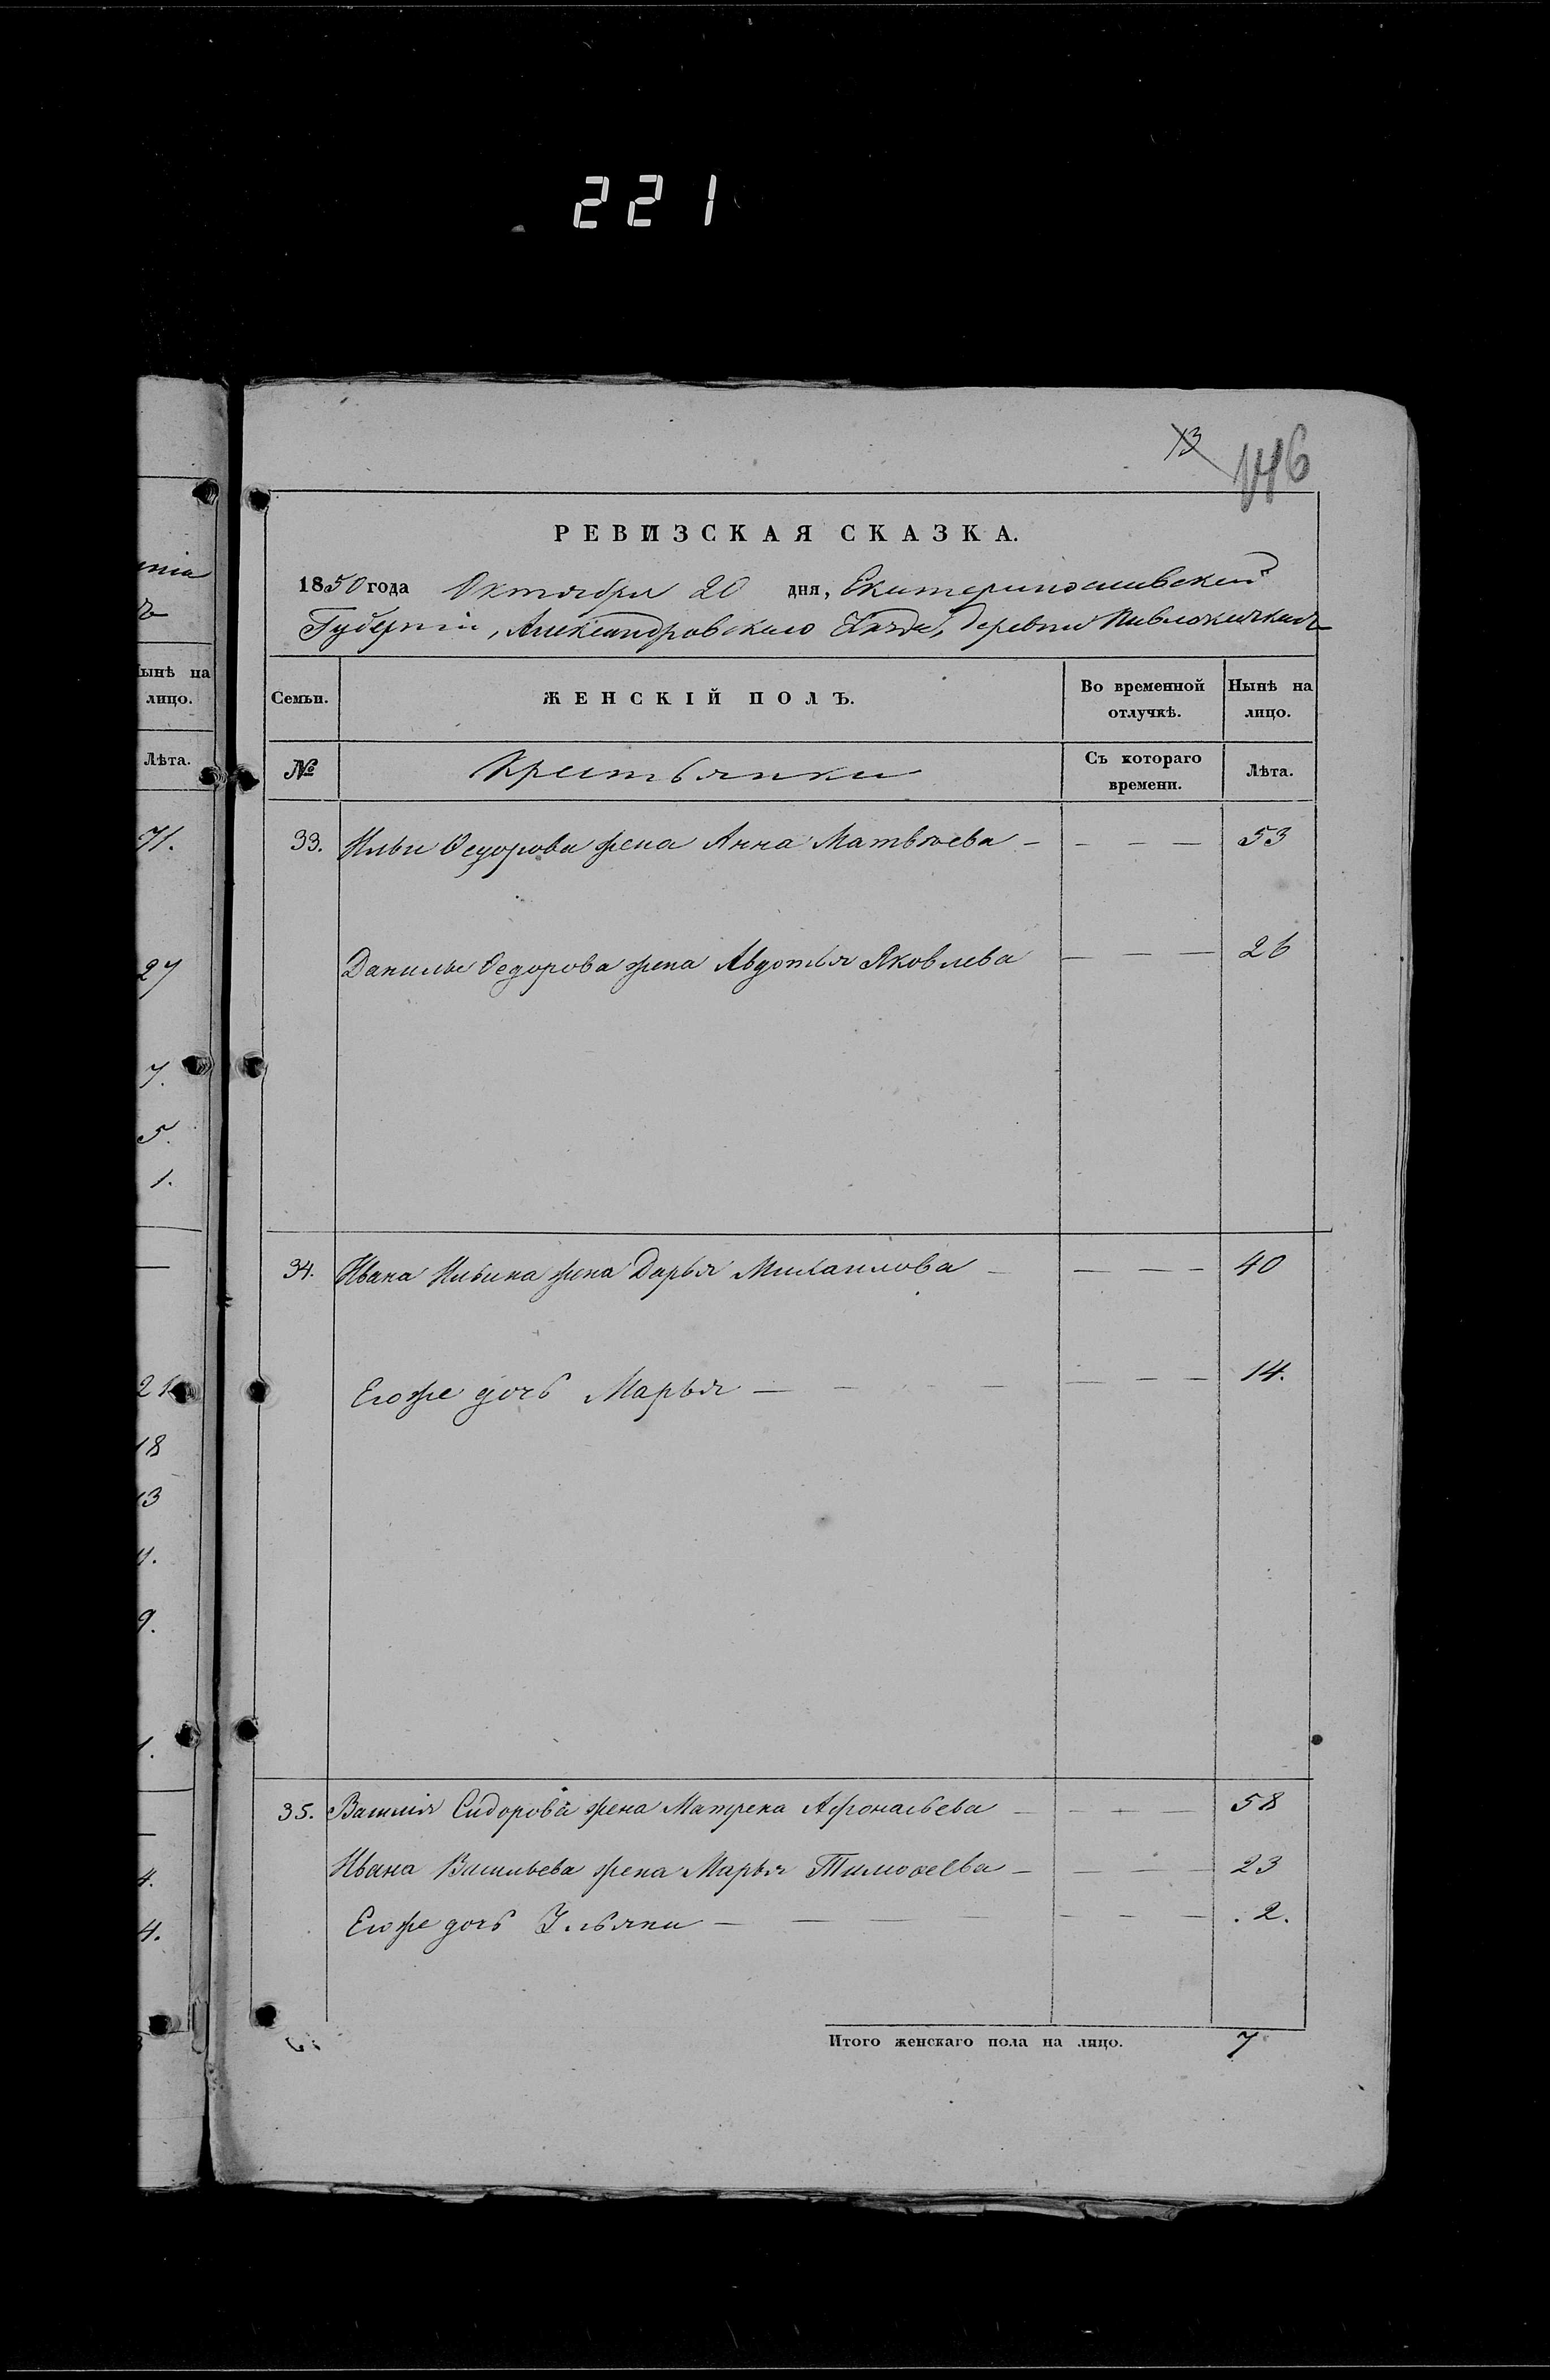 221
13
146
РЕВИЗСКАЯ СКАЗКА.
1850 года Октября 20 дня, Екатеринославской
Губерніи, Александровскаго Уѣзда, деревни Павлокичкасъ
Семьи. ЖЕНСКІЙ ПОЛЪ. Во временной отлучкѣ. Нынѣ на лицо.
№ Крестьянки Съ котораго времени. Лѣта.
33. Ильи Ѳедорова жена Анна Матвѣева – – – – 53
Данилы Ѳедорова жена Авдотья Яковлева – – – 26
34. Ивана Ильина жена Дарья Михаилова – – – – 40
Его же дочь Марья – – – – – – 14.
35. Василія Сидорова жена Матрена Афонасьева – – – – 58
Ивана Васильева жена Марья Тимоѳеева – – – – 23
Его же дочь Ульяна – – – – – – 2.
Итого женскаго пола на лицо. 7
нынѣ на
лицо.
Лѣта.
71.
27
7.
5.
1.
21
18
13
9.
1.
4.
4.